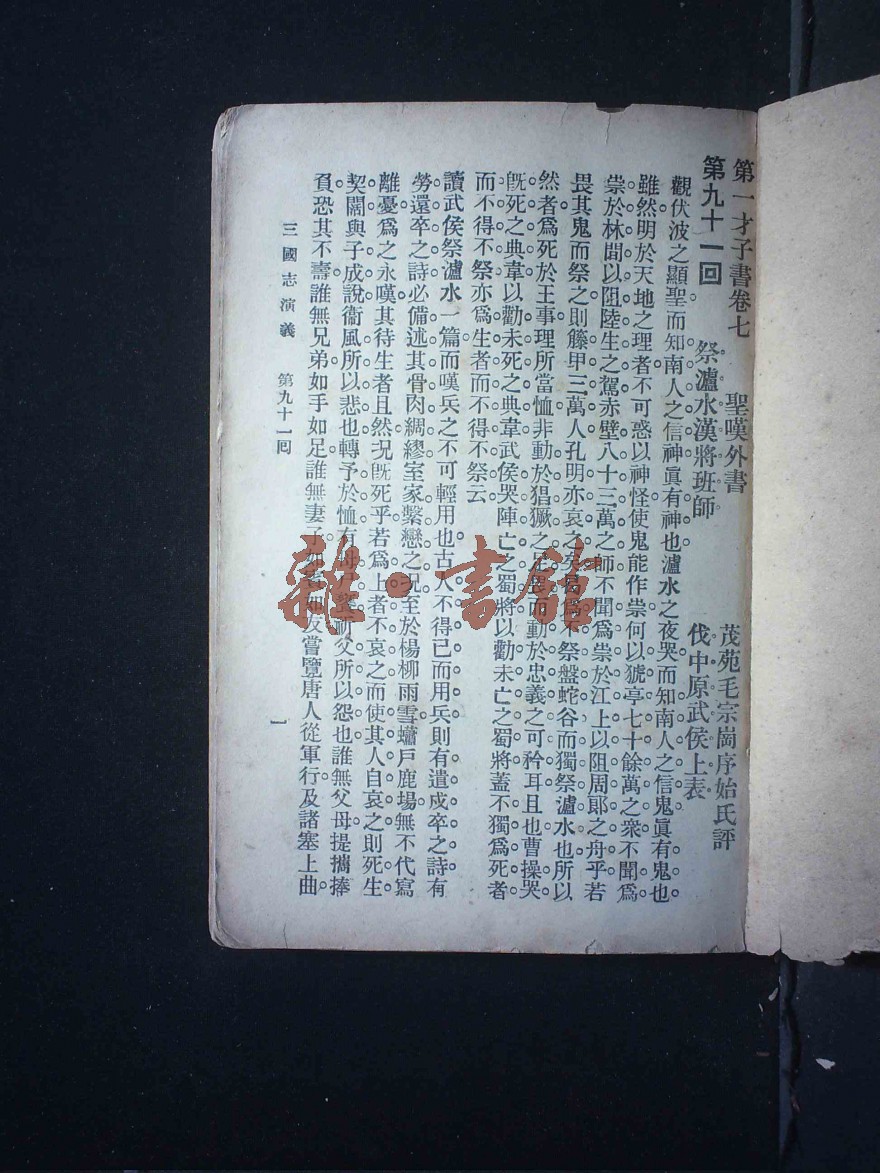 第一才子書卷七　聖嘆外書　茂苑毛宗崗序始氏評
第九十一回　祭瀘水漢將班師　伐中原武侯上表
觀伏波之顯聖而知南人之信神眞有神也瀘水之夜哭而知南人之信鬼眞有鬼也。
雖然明於天地之理者不可惑以神怪使鬼能作祟何以猇亭七十餘萬之衆不聞爲。
祟於林間以阻陸生之駕赤壁八十三萬之師不聞爲祟於江上以阻周郞之舟乎若
畏其鬼而祭之則籐甲三萬人孔明亦哀之矣曷爲不祭盤蛇谷而獨祭瀘水也所以
然者爲死於王事理所當恤非動於猖獗之足畏而動於忠義之可矜耳且也曹操哭
旣死之典韋以勸未死之典韋武侯哭陣亡之蜀將以勸未亡之蜀將蓋不獨爲死者
而不得不祭亦爲生者而不得不祭云
讀武侯祭瀘水一篇而嘆兵之不可輕用也古人不得已而用兵則有遣戍卒之詩有
勞還卒之詩必備述其骨肉綢繆室家繫戀之況至於楊柳雨雪蠨戶鹿場無不代寫
離憂爲之永嘆其待生者且然况旣死乎若爲上者不哀之而使其人自哀之則死生
契闊與子成說衞風所以悲也轉予於恤有母尸饔祈父所以怨也誰無父母提攜捧
負恐其不壽誰無兄弟如手如足誰無妻子如賓如友嘗覽唐人從軍行及諸塞上曲
三國志演義　第九十一回　一
雜·書館